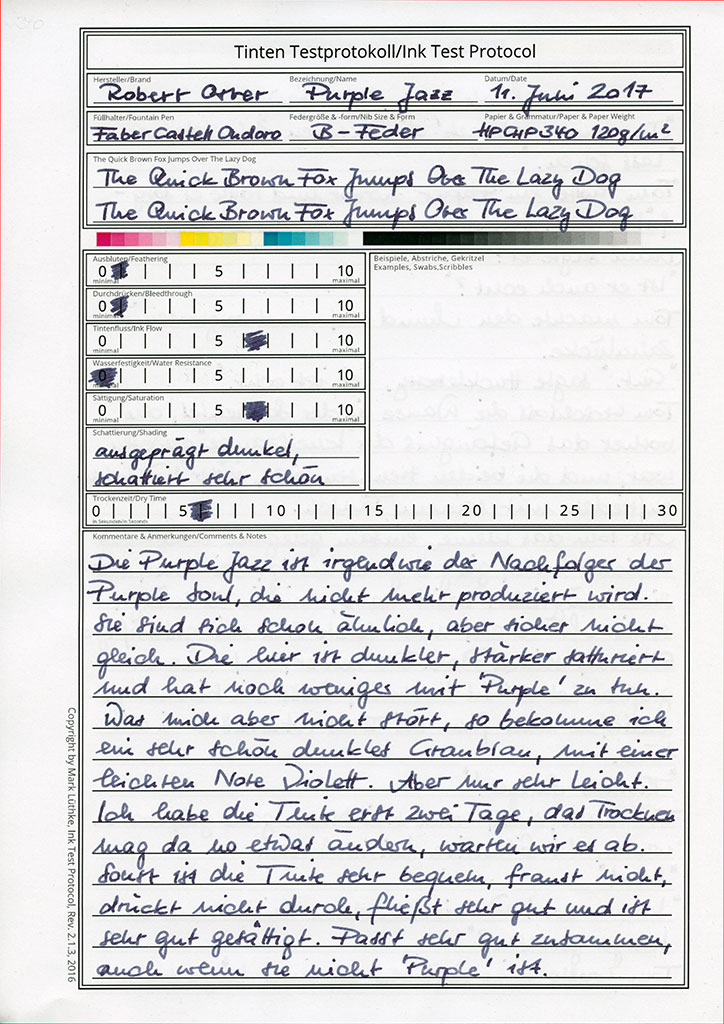 Tinten Testprotokoll/Ink Test Protocol
Hersteller/Brand Bezeichnung/Name Datum/Date
Robert Oster Purple Jazz 11. Juni 2017
Füllhalter/Fountain Pen Federgröße & -form/Nib Size & Form Papier & Grammatur/Paper & Paper Weight
Faber Castell Ondoro B-Feder HP CHP340 120g/m²
The Quick Brown Fox Jumps Over The Lazy Dog
The Quick Brown Fox Jumps Over The Lazy Dog
The Quick Brown Fox Jumps Over The Lazy Dog
Ausbluten/Feathering
0 5 10
minimal maximal
Beispiele, Abstriche, Gekritzel
Examples, Swabs,Scribbles
Durchdrücken/Bleedthrough
0 5 10
minimal maximal
Tintenfluss/Ink Flow
0 5 10
minimal maximal
Wasserfestigkeit/Water Resistance
0 5 10
minimal maximal
Sättigung/Saturation
0 5 10
minimal maximal
Schattierung/Shading
ausgeprägt dunkel,
schattiert sehr schön
Trockenzeit/Dry Time
0 5 10 15 20 25 30
in Sekunden/in Seconds
Kommentare & Anmerkungen/Comments & Notes
Die Purple Jazz ist irgendwie der Nachfolger der
Purple Soul, die nicht mehr produziert wird.
Sie sind sich schon ähnlich, aber sicher nicht
gleich. Die hier ist dunkler, stärker satturiert
und hat noch weniges mit 'Purple' zu tun.
Was mich aber nicht stört, so bekomme ich
ein sehr schön dunkles Graublau, mit einer
leichten Note Violett. Aber nur sehr leicht.
Ich habe die Tinte erst zwei Tage, das Trocknen
mag da no etwas ändern, warten wir es ab.
Sonst ist die Tinte sehr bequem, franst nicht,
drückt nicht durch, fließt sehr gut und ist
sehr gut gesättigt. Passt sehr gut zusammen,
auch wenn sie nicht 'Purple' ist.
Copyright by Mark Lüthke, Ink Test Protocol, Rev. 2.1.3, 2016